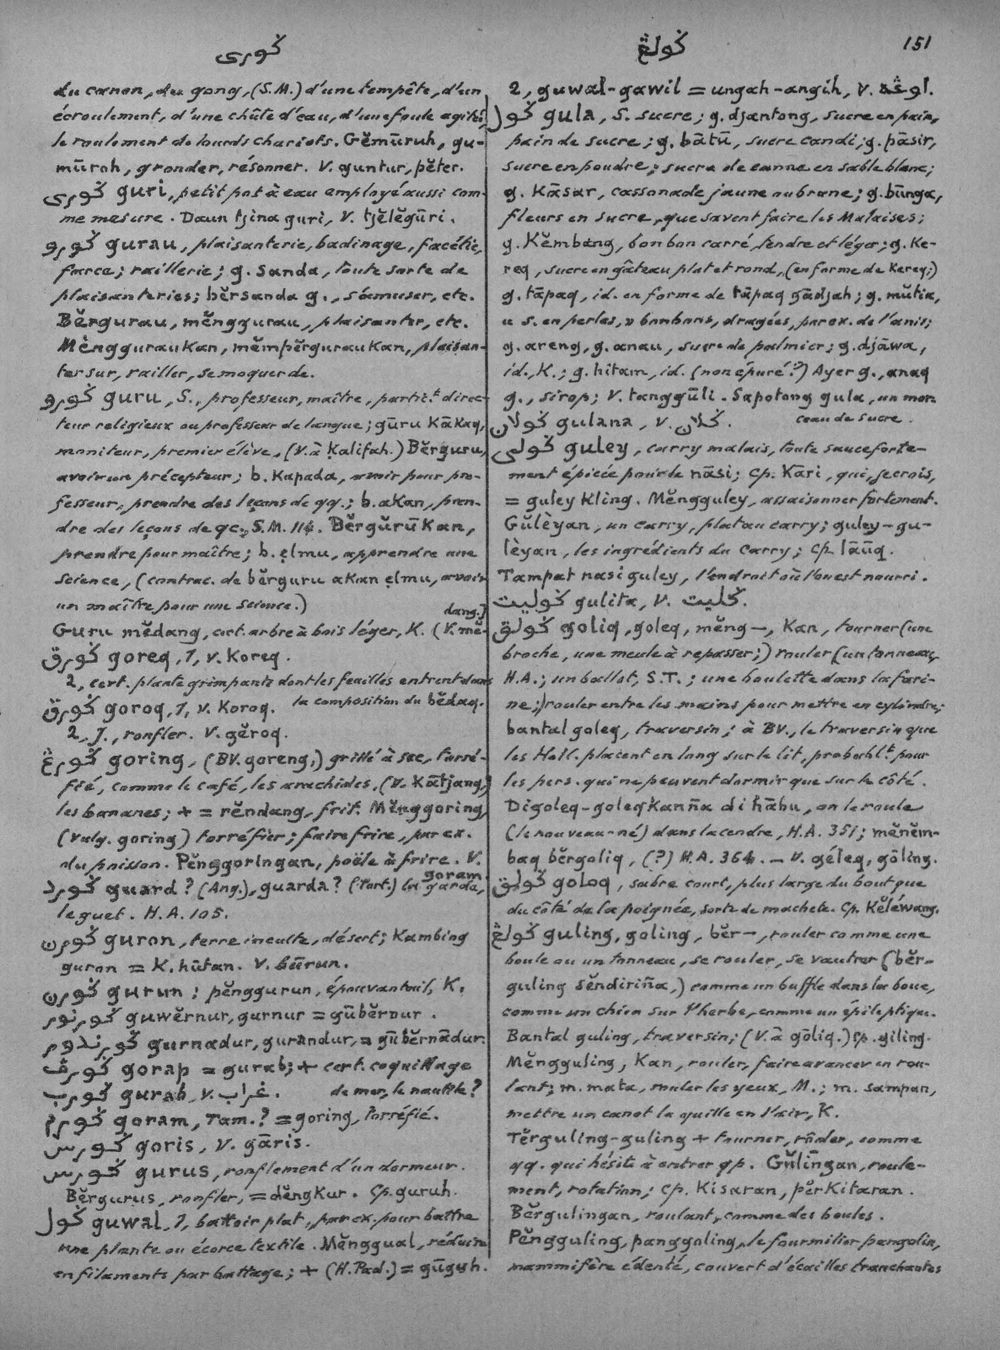 ڬوري
ڬولڠ
151
du canon, du gong, (S.M.) d'une tempête, d'un
écroulement, d'une chûte d'eau, d'une foule agitée,
le roulement de lourds chariots. Gĕmūruh, gu-
mūroh, gronder, résonner. V. guntur, pĕter.
ڬوري guri, petit pot à eau employé aussi com-
me mesure. Daun tjina guri, V. tjĕlĕgūri.
ڬورو gurau, plaisanterie, badinage, facétie,
farce; raillerie; g. sanda, toute sorte de
plaisanteries; bĕrsanda g., s'amuser, etc.
Bĕrgurau, mĕnggurau, plaisanter, etc.
Mĕngguraukan, mĕmpĕrguraukan, plaisan-
ter sur, railler, se moquer de.
ڬورو guru, S., professeur, maître, partic.t direc-
teur religieux ou professeur de langue; gūru kākaq,
moniteur, premier élève, (V. à kalifah.) Bĕrguru,
avoir un précepteur; b. kapada, avoir pour pro-
fesseur, prendre des leçons de qq.; b. akan, pren-
dre des leçons de qc., S.M. 114. Bĕrgŭrūkan,
prendre pour maître; b. elmu, apprendre une
science, (contrac. de bĕrguru akan elmu, avoir
un maître pour une science.)
Guru mĕdang, cert. arbre à bois léger, K. (V. mĕ-
dang.)
ڬورق goreq, 1, v. Koreq.
2, cert. plante grimpante dont les feuilles entrent dans
la composition du bĕdaq.
ڬورق goroq, 1, v. Koroq.
2, J., ronfler. V. gĕroq.
ڬورڠ goring, (BV. goreng,) grillé à sec, torré-
fié, comme le café, les arachides, (V. Kātjang,)
les bananes; + = rĕndang, frit. Mĕnggoring,
(vulg. goring) torréfier; faire frire, par ex.
du poisson. Pĕnggoringan, poële à frire. V.
goram.
ڬورد guard? (Ang.), guarda? (Port.) la garde,
le guet. H.A. 105.
ڬورن guron, terre inculte, désert; Kambing
guron = K. hūtan. V. būrun.
ڬورن gurun; pĕnggurun, épouvantail, K.
ڬورنور guwĕrnur, gurnur = gūbĕrnur.
ڬورندور gurnadur, gurandur, = gūbĕrnādur.
ڬورڤ gorap = gurab; + cert. coquillage
de mer, le nautile?
ڬورب gurab, v. غراب.
ڬورم goram, Tam.? = goring, torréfié.
ڬورس goris, V. gāris.
ڬورس gurus, ronflement d'un dormeur.
Bĕrgurus, ronfler, = dĕngkur. Cp. guruh.
ڬول guwal, 1, battoir plat, par ex. pour battre
une plante ou écorce textile. Mĕnggual, réduire
en filaments par battage; + (H. Pad.) = gūguh.
2, guwal-gawil = ungah-angih, V. اوڠه.
ڬول gula, S. sucre; g. djantong, sucre en pain,
pain de sucre; g. bātū, sucre candi; g. pāsir,
sucre en poudre; sucre de canne en sable blanc;
g. kāsar, cassonade jaune ou brune; g. būnga,
fleurs en sucre, que savent faire les Malaises;
g. Kĕmbang, bonbon carré, tendre et léger; g. Ke-
req, sucre en gâteau plat et rond, (en forme de Kereq;)
g. tāpaq, id. en forme de tāpaq gādjah; g. mŭtia,
u s. en perles, v bonbons, dragées, par ex. de l'anis;
g. areng, g. anau, sucre de palmier; g. djāwa,
id., K.; g. hitam, id. (non épuré?) Ayer g., anaq
g., sirop; V. tanggūli. Sapotong gula, un mor-
ceau de sucre.
ڬولان gulana, V. ڬلان.
ڬولي guley, carry malais, toute sauce forte-
ment épicée pour le nāsi; Cp. Kāri, qui, je crois,
= guley kling. Mĕngguley, assaisonner fortement.
Gŭlèyan, un carry, plat au carry; guley-gu-
lèyan, les ingrédients du carry; Cp. lāūq.
Tampat nasi guley, l'endroit où l'on est nourri.
ڬوليت gulita, V. ڬليت.
ڬولق goliq, goleq, mĕng—, kan, tourner (une
broche, une meule à repasser;) rouler (un tonneau,
H.A.; un ballot, S.T.; une boulette dans la fari-
ne;) rouler entre les mains pour mettre en cylindre;
bantal goleq, traversin; à BV., le traversin que
les Holl. placent en long sur le lit, probabl.t pour
les pers. qui ne peuvent dormir que sur le côté.
Digoleq-goleqkanña di hābu, on le roule
(le nouveau-né) dans la cendre, H.A. 351; mĕnĕm-
baq bĕrgoliq, (?) H.A. 364. — V. géleq, gōling.
ڬولق goloq, sabre court, plus large du bout que
du côté de la poignée, sorte de machete. Cp. Kĕléwang.
ڬولڠ guling, goling, bĕr—, rouler comme une
boule ou un tonneau, se rouler, se vautrer (bĕr-
guling sĕndiriña,) comme un buffle dans la boue,
comme un chien sur l'herbe, comme un épileptique.
Bantal guling, traversin; (V. à gōliq.) Cp. giling.
Mĕngguling, kan, rouler, faire avancer en rou-
lant; m. mata, rouler les yeux, M.; m. sampan,
mettre un canot la quille en l'air, K.
Tĕrguling-guling + tourner, rôder, comme
qq. qui hésite à entrer qp. Gŭlingan, roule-
ment, rotation; Cp. Kisaran, pĕrkitaran.
Bĕrgulingan, roulant, comme des boules.
Pĕngguling, panggoling, le fourmilier pangolin,
mammifère édenté, couvert d'écailles tranchantes